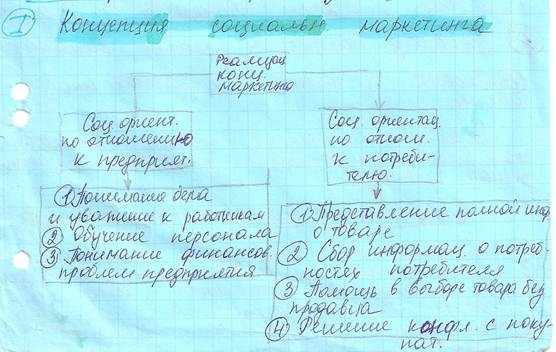 I Концепция социальн маркетинга
Реализац
конц.
маркетинга
Соц ориент.
по отношению
к предприят.
Соц. ориентац.
по отнош.
к потреби-
телю.
① Понимания дела
и уважение к работникам
② Обучение персонала
③ Понимание финансов.
проблем предприятия
① Представление полной инф
о товаре
② Сбор информац. о потреб-
ностях потребителя
③ Помощь в выборе товара без
продавца
④ Решение конфл. с поку-
пат.